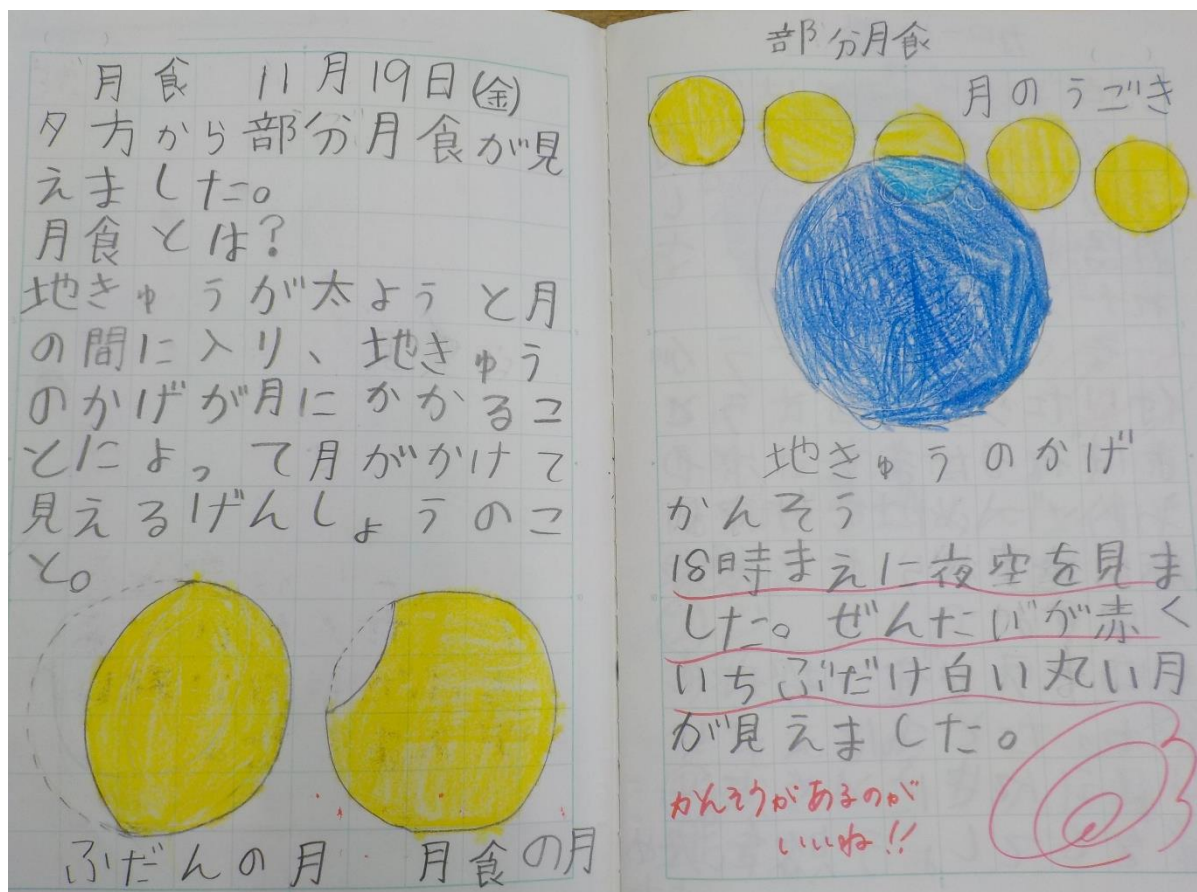 月食 11月19日(金)
夕方から部分月食が見
えました。
月食とは?
地きゅうが太ようと月
の間に入り、地きゅう
のかげが月にかかるこ
とによって月がかけて
見えるげんしょうのこ
と。
ふだんの月 月食の月
部分月食
月のうごき
地きゅうのかげ
かんそう
18時まえに夜空を見ま
した。ぜんたいが赤く
いちぶだけ白い丸い月
が見えました。
かんそうがあるのが
いいね!!